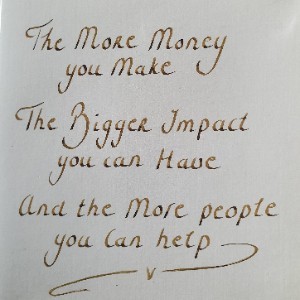 The More Money
you Make
The Bigger Impact
you can Have
And the More people
you Can help